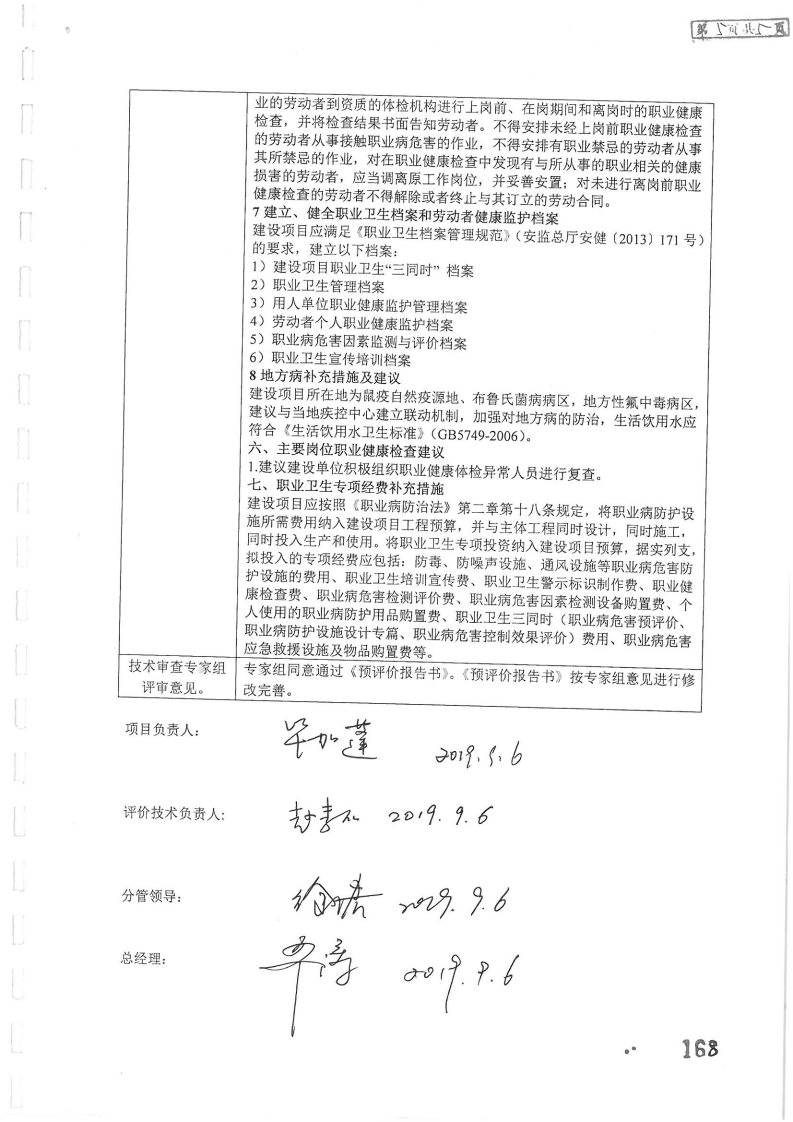 第5页共5页
业的劳动者到资质的体检机构进行上岗前、在岗期间和离岗时的职业健康
检查，并将检查结果书面告知劳动者。不得安排未经上岗前职业健康检查
的劳动者从事接触职业病危害的作业，不得安排有职业禁忌的劳动者从事
其所禁忌的作业，对在职业健康检查中发现有与所从事的职业相关的健康
损害的劳动者，应当调离原工作岗位，并妥善安置；对未进行离岗前职业
健康检查的劳动者不得解除或者终止与其订立的劳动合同。
7 建立、健全职业卫生档案和劳动者健康监护档案
建设项目应满足《职业卫生档案管理规范》（安监总厅安健〔2013〕171 号）
的要求，建立以下档案：
1）建设项目职业卫生“三同时”档案
2）职业卫生管理档案
3）用人单位职业健康监护管理档案
4）劳动者个人职业健康监护档案
5）职业病危害因素监测与评价档案
6）职业卫生宣传培训档案
8 地方病补充措施及建议
建设项目所在地为鼠疫自然疫源地、布鲁氏菌病病区，地方性氟中毒病区，
建议与当地疾控中心建立联动机制，加强对地方病的防治，生活饮用水应
符合《生活饮用水卫生标准》（GB5749-2006）。
六、主要岗位职业健康检查建议
1.建议建设单位积极组织职业健康体检异常人员进行复查。
七、职业卫生专项经费补充措施
建设项目应按照《职业病防治法》第二章第十八条规定，将职业病防护设
施所需费用纳入建设项目工程预算，并与主体工程同时设计，同时施工，
同时投入生产和使用。将职业卫生专项投资纳入建设项目预算，据实列支，
拟投入的专项经费应包括：防毒、防噪声设施、通风设施等职业病危害防
护设施的费用、职业卫生培训宣传费、职业卫生警示标识制作费、职业健
康检查费、职业病危害检测评价费、职业病危害因素检测设备购置费、个
人使用的职业病防护用品购置费、职业卫生三同时（职业病危害预评价、
职业病防护设施设计专篇、职业病危害控制效果评价）费用、职业病危害
应急救援设施及物品购置费等。
技术审查专家组
评审意见。
专家组同意通过《预评价报告书》。《预评价报告书》按专家组意见进行修
改完善。
项目负责人：
2019.9.6
评价技术负责人：
2019.9.6
分管领导：
2019.9.6
总经理：
2019.9.6
168